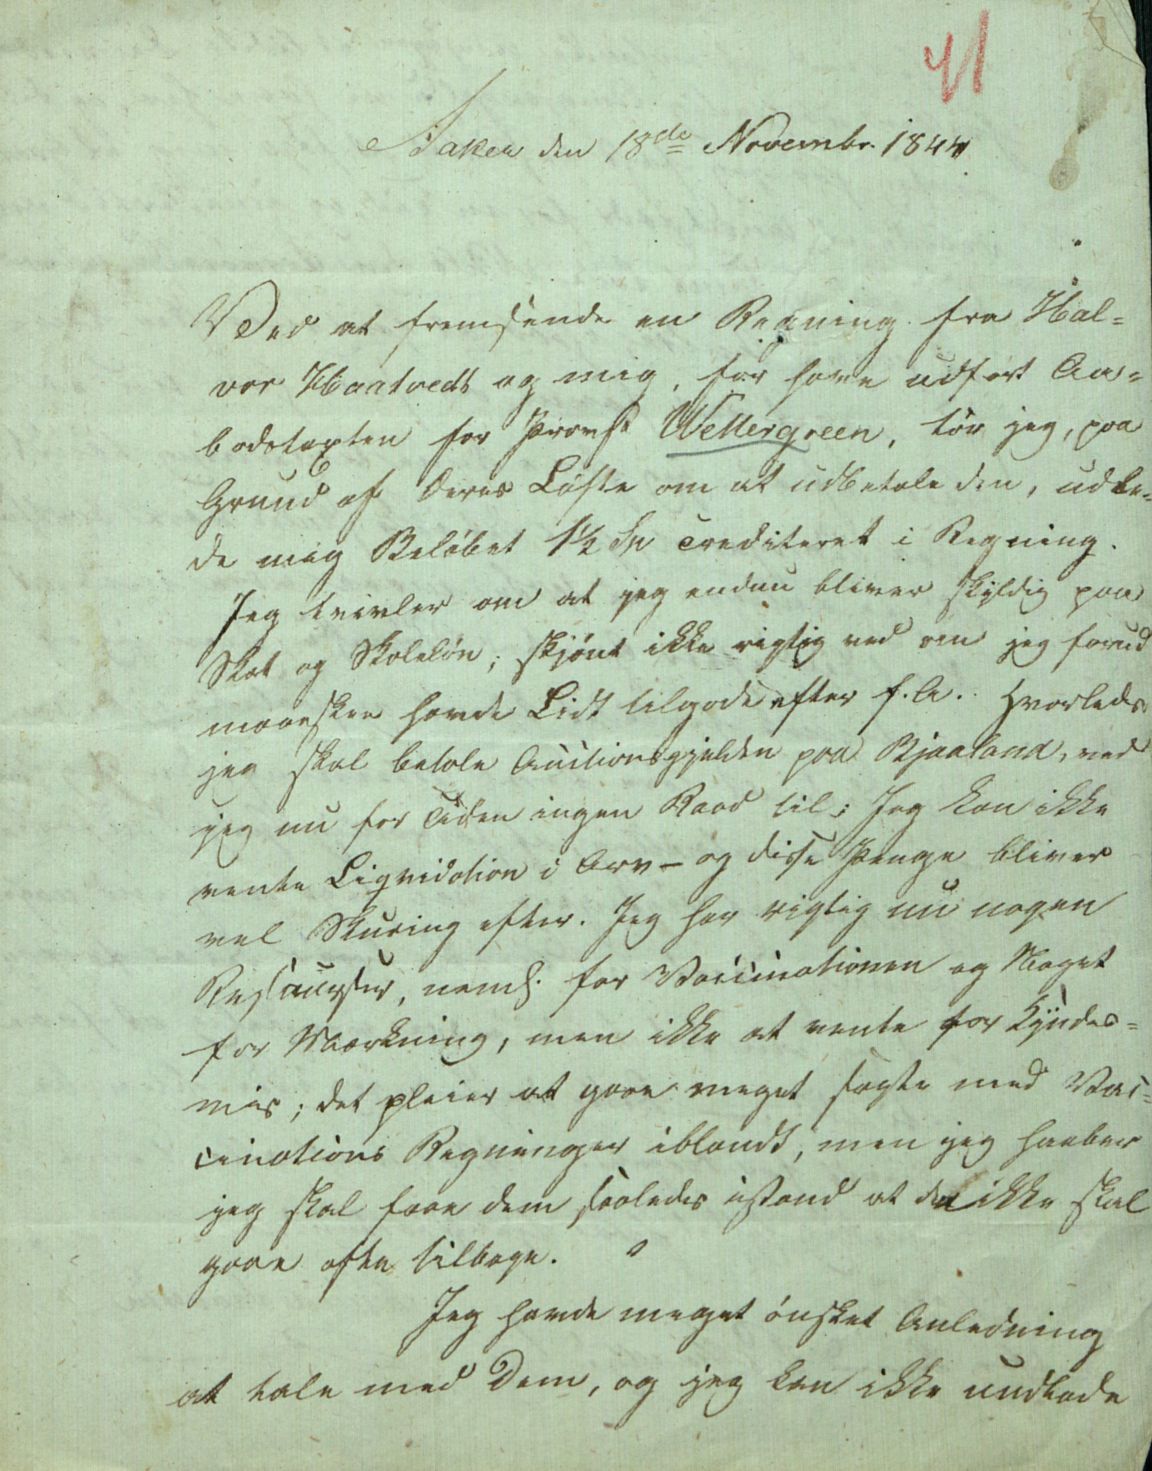 41
Aaker den 18de Novembr. 1844
Ved at fremsende en Regning fra Hal-
vor Haatvedt og mig, for have udført An-
bodstaxten for Provst Wettergreen, tør jeg, paa
Grund af Deres Løfte om at udbetale den, udbe-
de mig Beløbet 1½ Sp crediteret i Regning.
Jeg tvivler om at jeg endnu bliver skyldig paa
Skat og Skoleløn; skjønt ikke rigtig ved om jeg forud
maaskee havde Lidt tilgode efter f. A. Hvorledes
jeg skal betale Auctionsgjelden paa Bjaaland, ved
jeg nu for Tiden ingen Raad til; Jeg kan ikke
vente Liqvidation i Arv – og disse Penge bliver
vel Skuring efter. Jeg har rigtig nu nogen
Ressourser, nemlig for Vaccinationen og Noget
for Mærkning, men ikke at vente før Kyndes-
mis; det pleier at gaae meget sagte med Vac-
cinations Regninger iblandt, men jeg haaber
jeg skal faae dem saaledes istand at de ikke skal
gaae ofte tilbage.
Jeg havde meget ønsket Anledning
at tale med Dem, og jeg kan ikke undlade